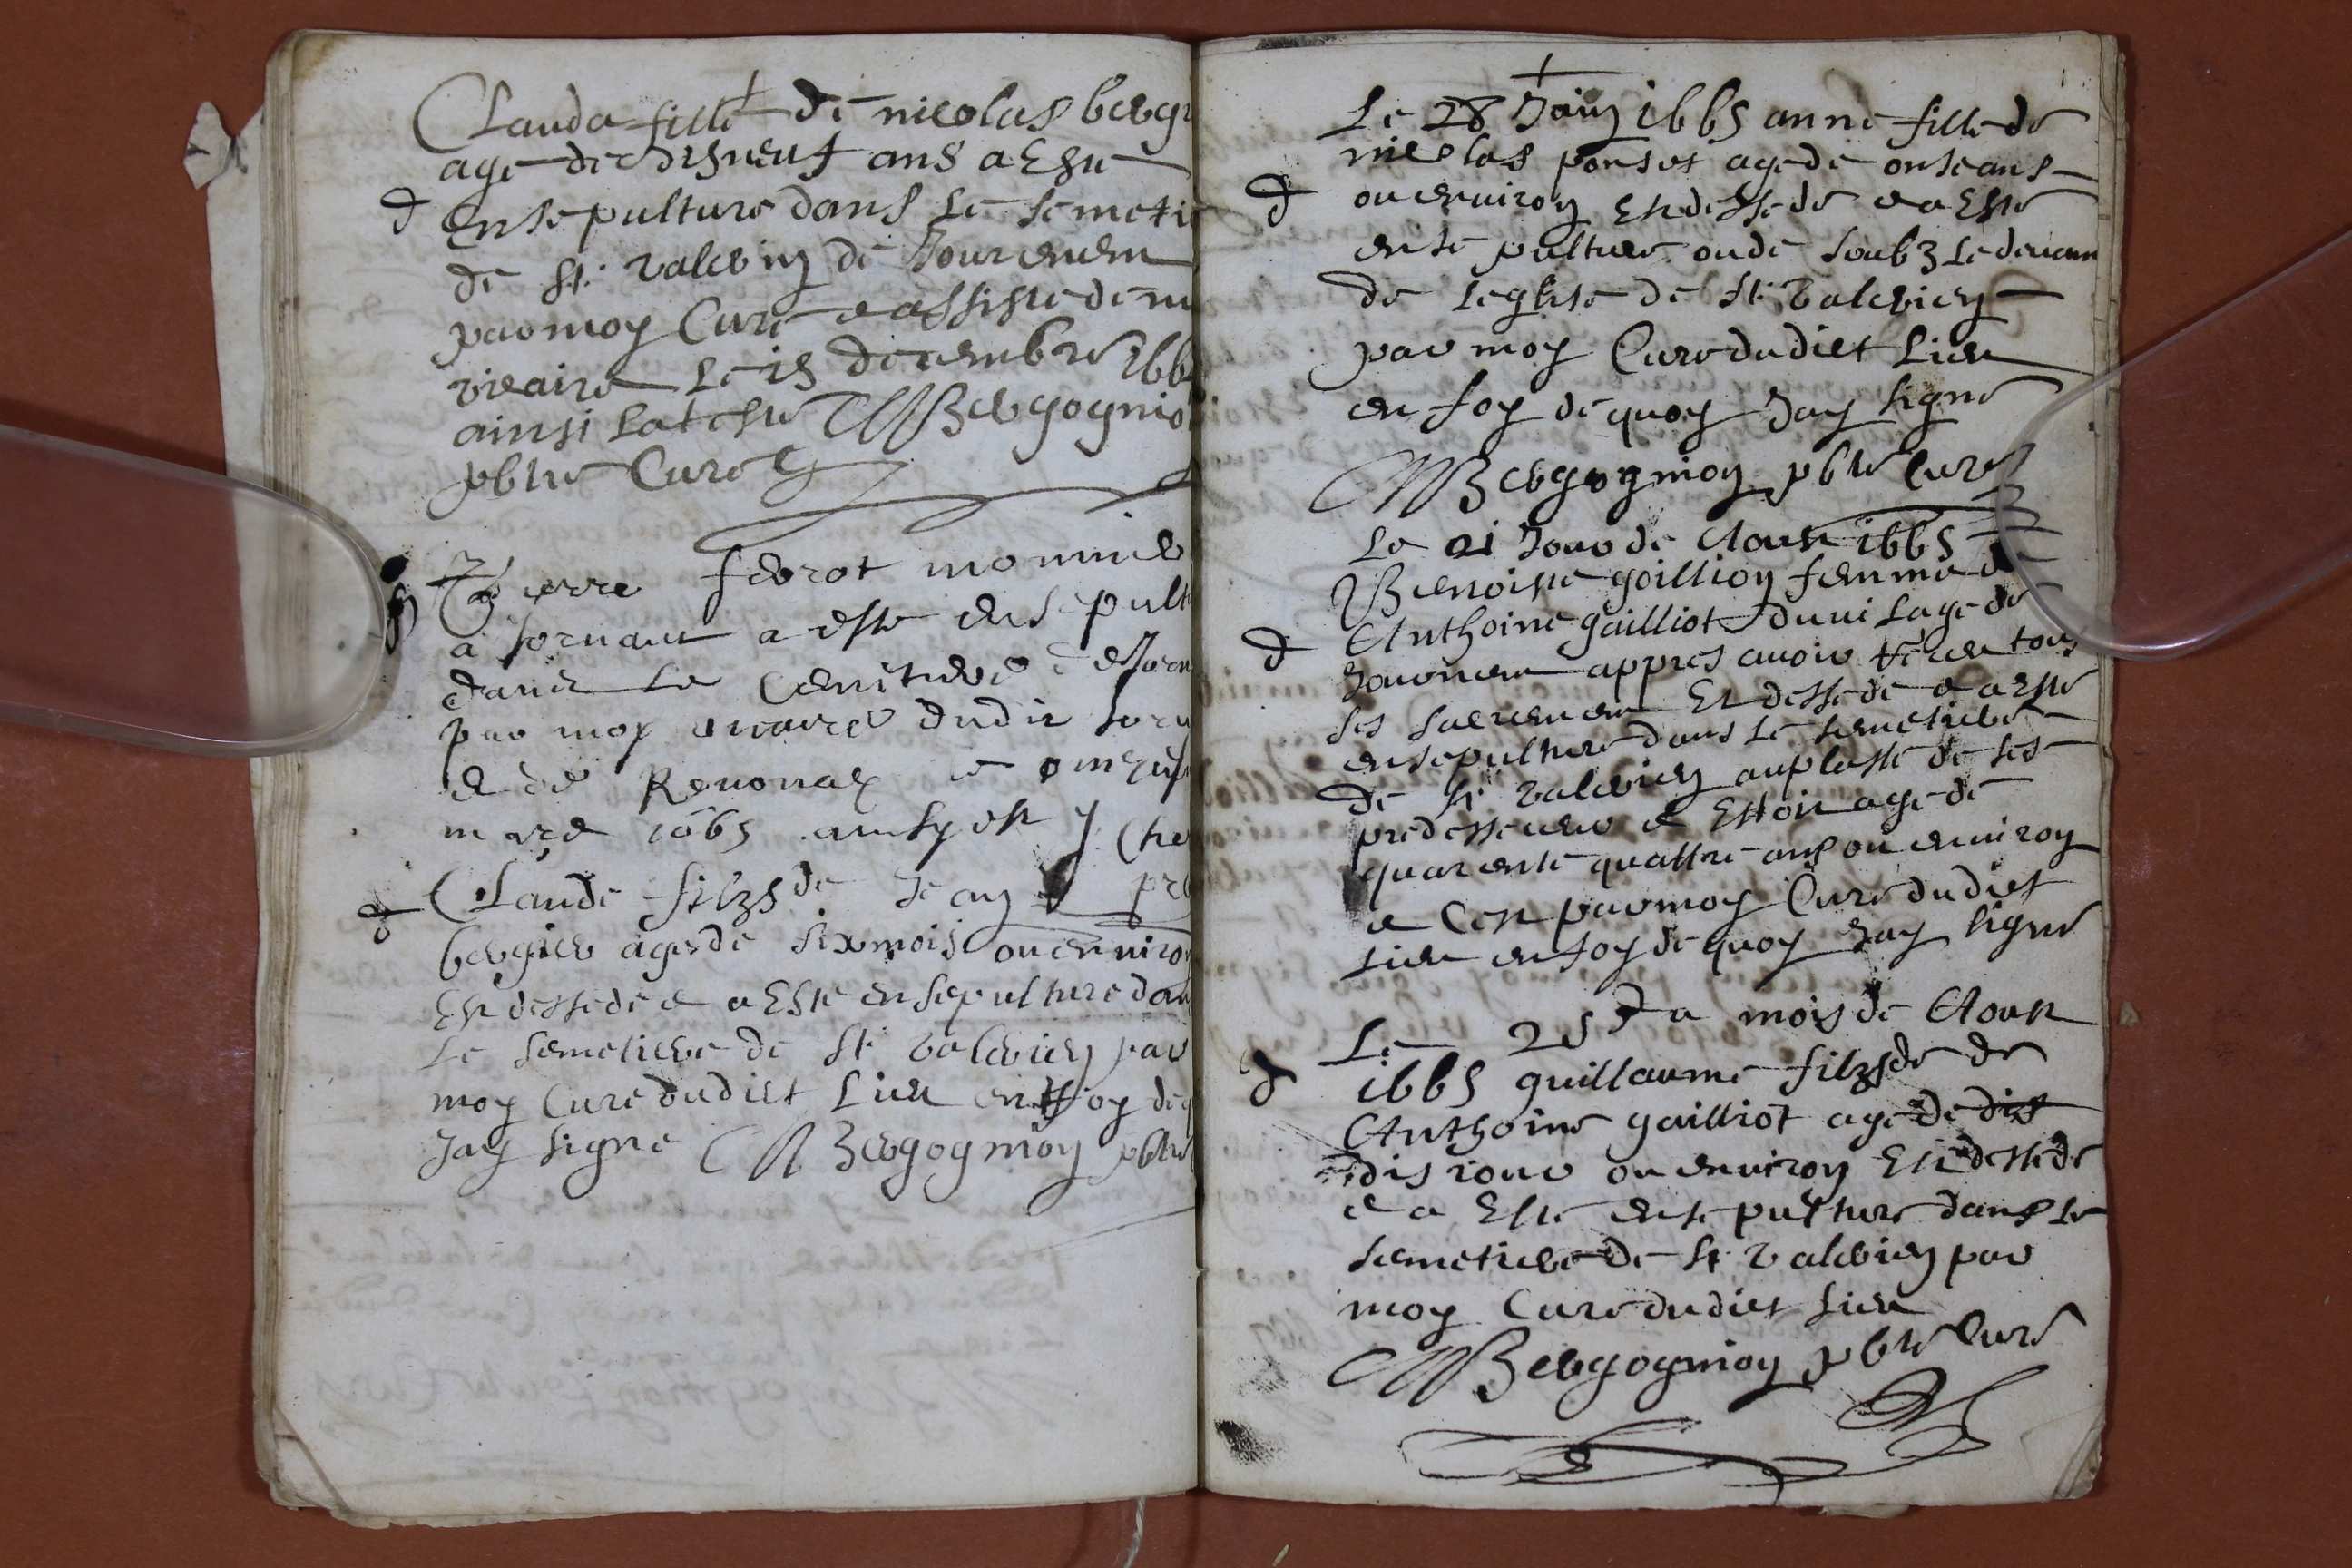 Clauda fille de nicolas bergi
age de disneuf ans a este
d
ensepulture dans le semeti
de St. valerin de Jouremem
par moy Cure e assiste de m
vicaire le 15 decembre 166
ainsi lateste Bergognio
pbtre Cure
Pierre ferrot monnier
a sornaut a este ensepult
dans le Cemitiere
par moy vicaire dudit sorn
e de Renonax e
mars 1665 ainsy est J. Che
d
Claude filzs de Jean pre
bergier age de six mois ou environ
Est dessede e a Este ensepulture dan
Le semetiere de St. valerien par
moy Cure dudict Lieu en foy de q
Jay signe Bergognion pbtre
Le 28 Juin 1665 anne fille de
nicolas ponset age de onse ans
d
ou environ Est dessede e a Este
ensepulture soubz le devam
de leglise de St. valerien
par moy Cure dudict Lieu
en foy de quoy Jay signe
Bergognion pbtre Cure
Le 21 Jour de Aoust 1665
Benoiste goillion femme de
Anthoine gailliot du vilage de
d
appres avoir receu tous
ses sacremem Est dessede e a Este
ensepulture dans le semetiere
de St. valerien au plasse de ses
predesseseur e Estoit age de
quarente quattre ans ou environ
e Cest par moy Cure dudict
Lieu en foy de quoy Jay signe
Le 25 du mois de Aoust
1665 guillaume filzs de de
d
Anthoine gailliot age de dis
dis jour ou environ Est dessede
e a Este ensepulture dans le
semetiere de St. valerien par
moy Cure dudict Lieu
Bergognion pbtre Cure